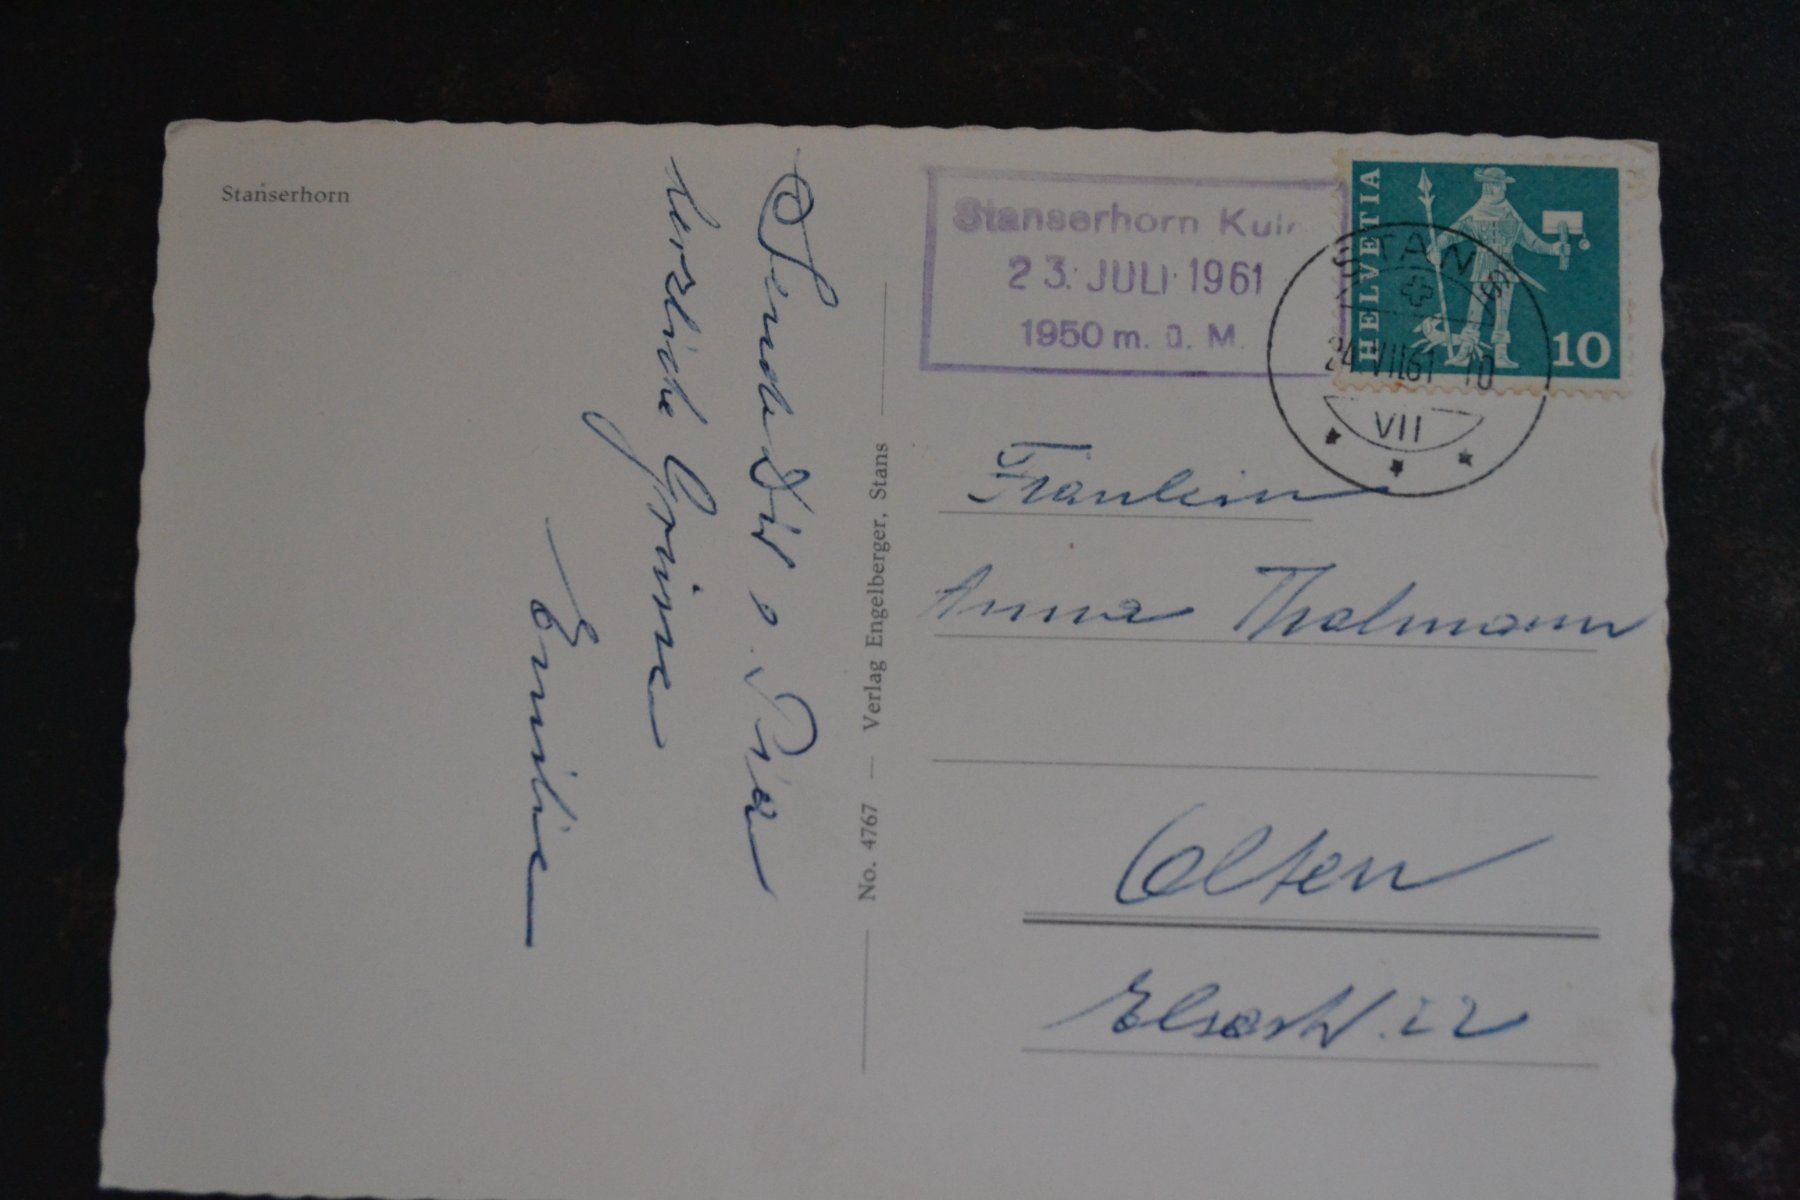 Stanserhorn
Sende Dir & Pia
herzliche Grüsse
Emilie
No. 4767 — Verlag Engelberger, Stans
Stanserhorn Kulm
23. JULI 1961
1950 m. ü. M.
HELVETIA
10
STANS
24.VII.61 10
VII
Fräulein
Anna Thalmann
Olten
22